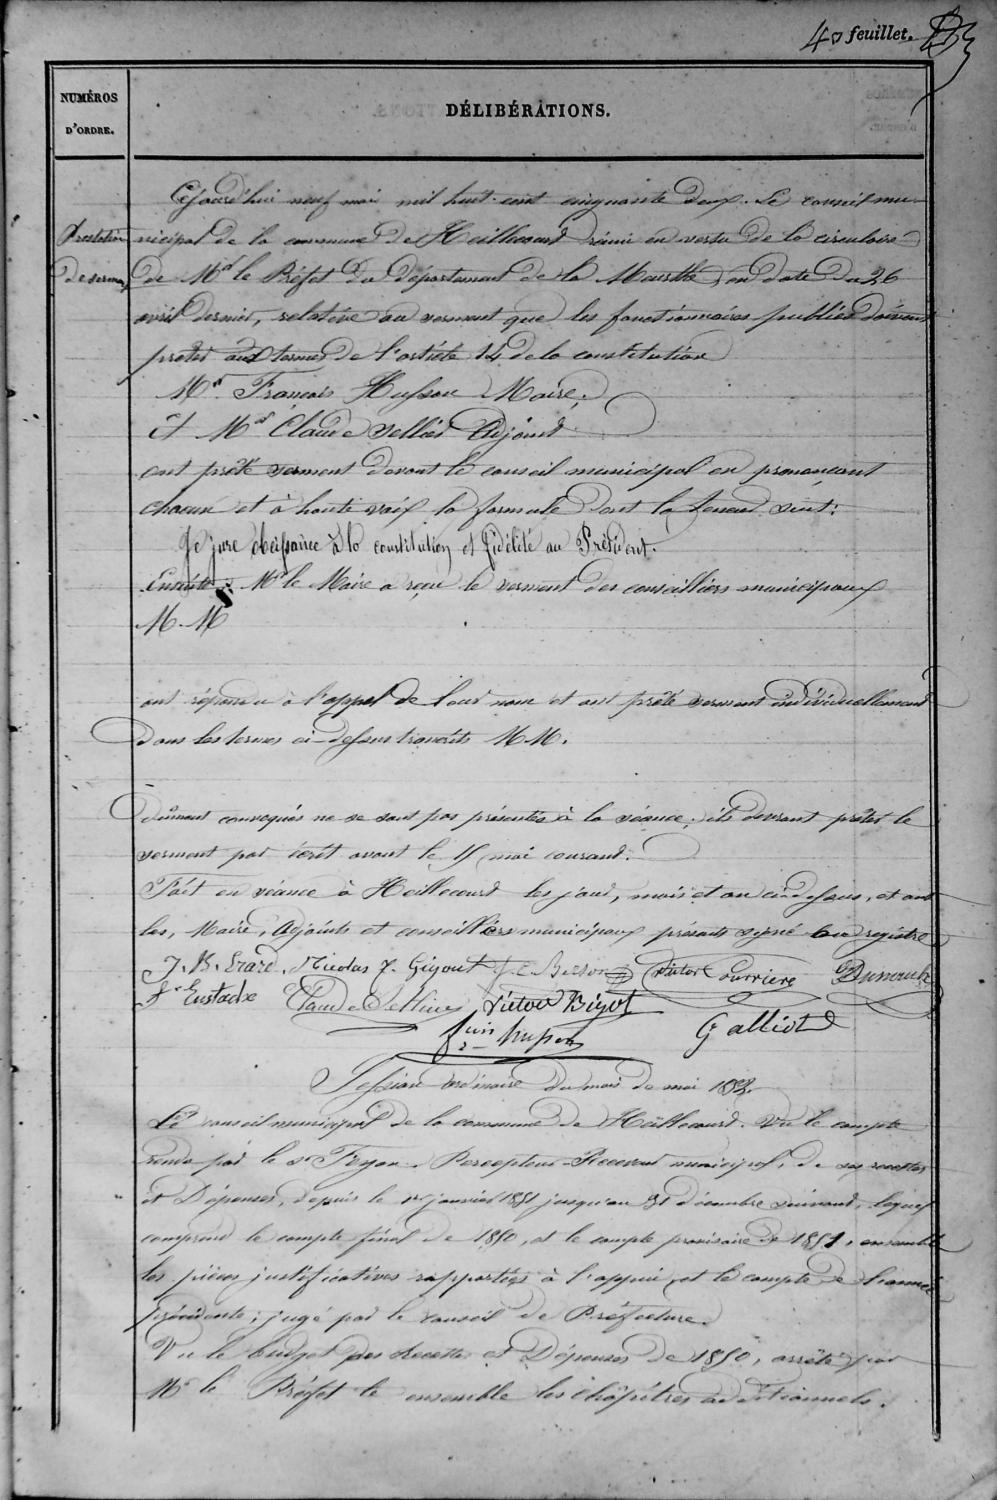 40 feuillet.
NUMÉROS
D'ORDRE.
DÉLIBÉRATIONS.
Cejourd'hui neuf mai mil huit-cent cinquante deux. Le conseil mu-
Prestation
de serment
nicipal de la commune de Heillecourt réuni en vertu de la circulaire
de Mr le Préfet du département de la Meurthe en date du 26
avril dernier, relative au serment que les fonctionnaires publics doivent
prêter aux termes de l'article 14 de la constitution
Mr. François Husson Maire,
Et Mr Claude Sellier Adjoint
ont prêté serment devant le conseil municipal en prononçant
chacun et à haute voix la formule dont la teneur suit:
Je jure obéissance à la constitution et fidélité au Président.
Ensuite Mr le Maire a reçu le serment des conseillers municipaux
M. M
ont répondu à l'appel de leur nom et ont prêté serment individuellement
dans les termes ci-dessus transcrits M.M.
dûment convoqués ne se sont pas présentés à la séance; ils devront prêter le
serment par écrit avant le 15 mai courant.
Fait en séance à Heillecourt les jour, mois et an ci-dessus, et ont
les, Maire, Adjoints et conseillers municipaux présents signé au registre
J. B. Erard. Nicolas F. Gigout J. C. Besson Victor Courriere
Fs Eustache Claude Sellier Victor Bigot
fcois husson G alliot
Session ordinaire du mois de mai 1852.
Le conseil municipal de la commune de Heillecourt. Vu le compte
rendu par le sr Percepteur-Receveur municipal, de ses recettes
et Dépenses, depuis le 1er janvier 1851 jusqu'au 31 décembre suivant, lequel
comprend le compte final de 1850, et le compte provisoire de 1851, ensemble
les pièces justificatives rapportées à l'appui, et le compte de l'année
précédente; jugé par le conseil de Préfecture.
Vu le budget des Recettes et Dépenses de 1850, arrêté par
Mr le Préfet le ensemble les chapitres additionnels.